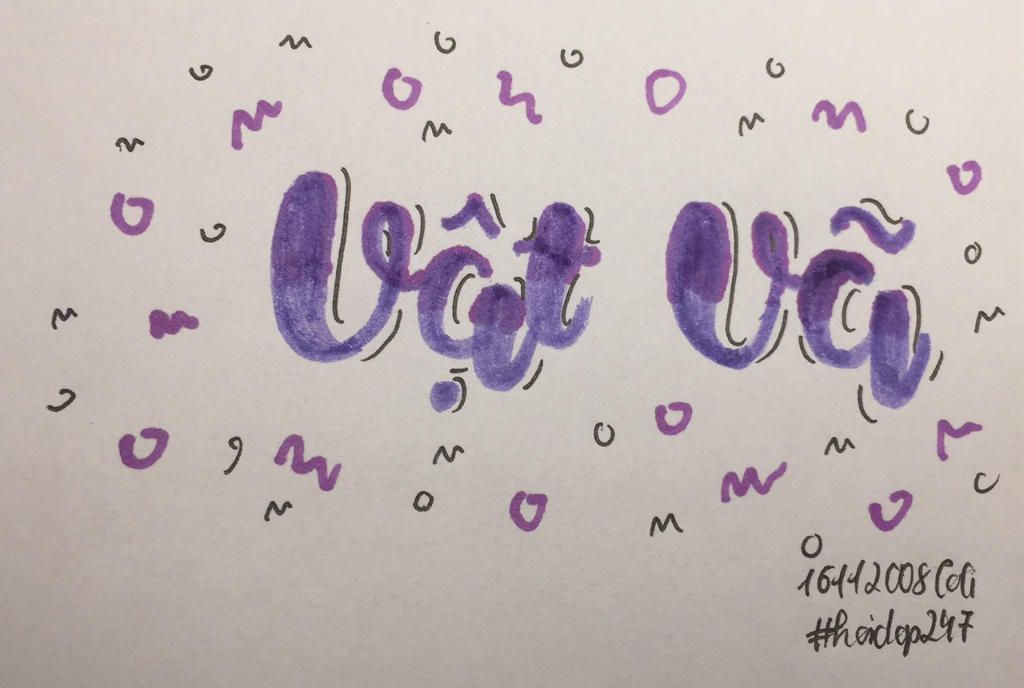 Vật Vã
16112008Coli
#heidep247